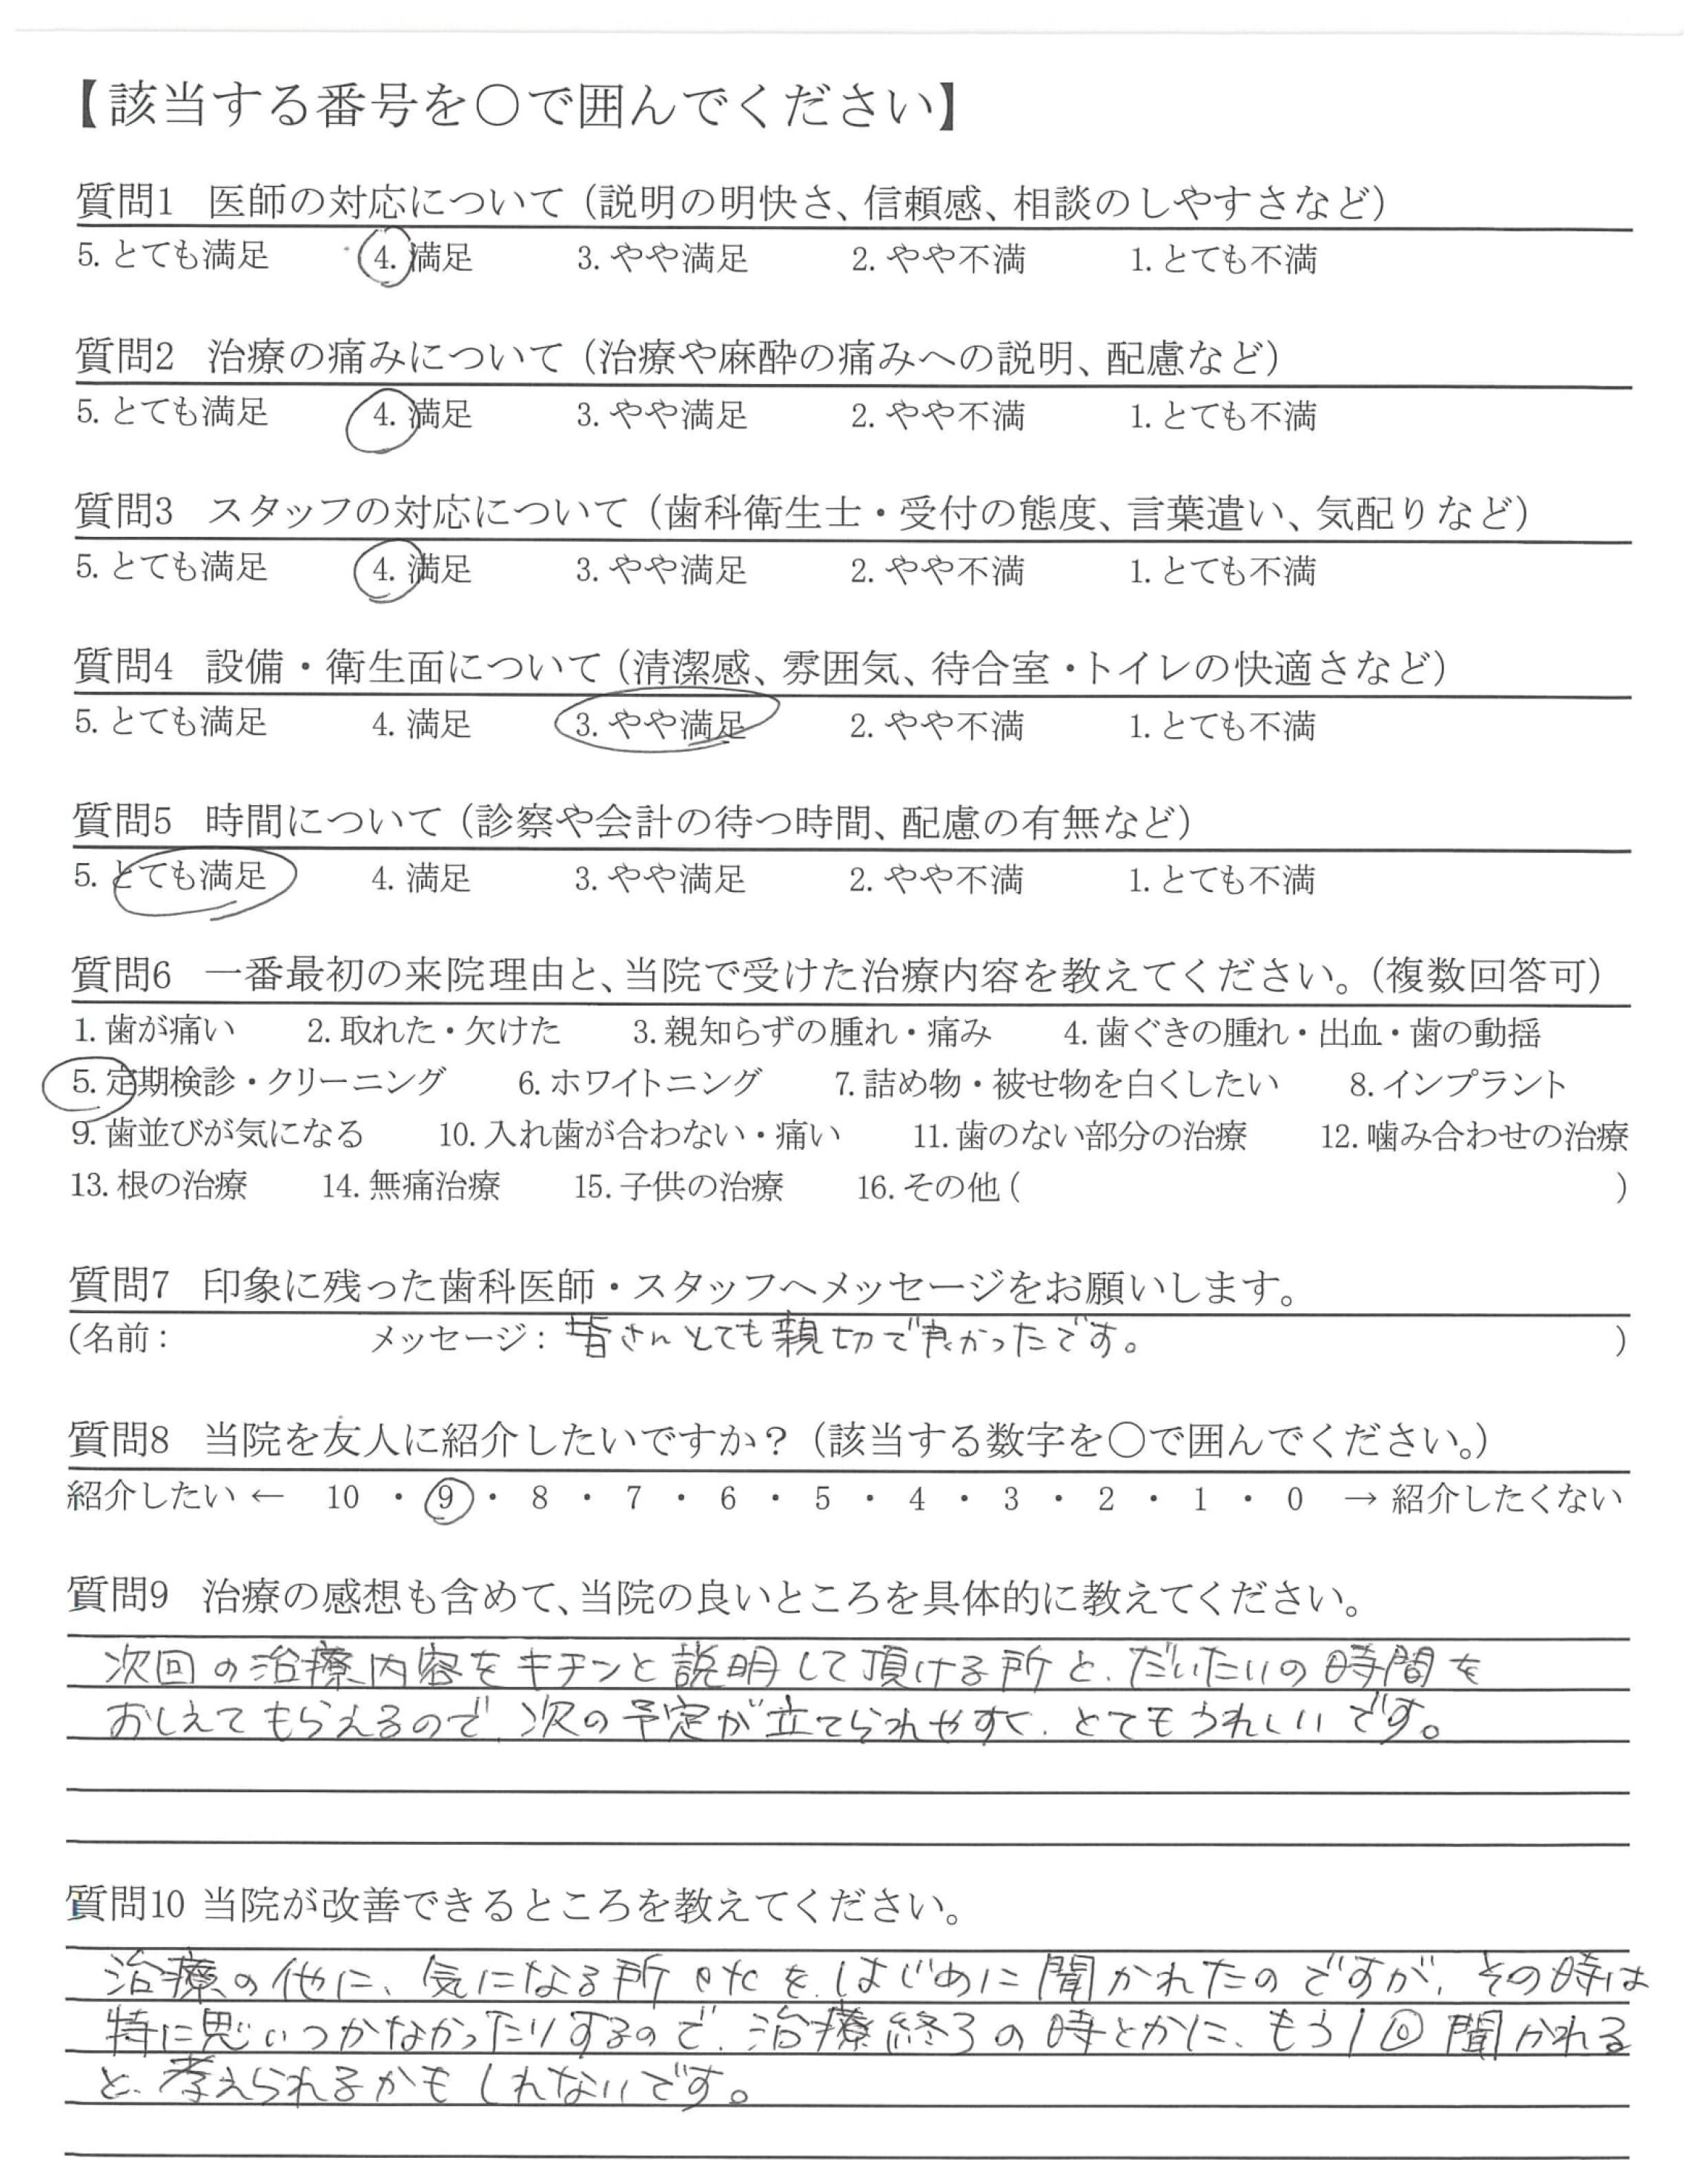 【該当する番号を○で囲んでください】
質問1 医師の対応について（説明の明快さ、信頼感、相談のしやすさなど）
5. とても満足 4. 満足 3. やや満足 2. やや不満 1. とても不満
質問2 治療の痛みについて（治療や麻酔の痛みへの説明、配慮など）
5. とても満足 4. 満足 3. やや満足 2. やや不満 1. とても不満
質問3 スタッフの対応について（歯科衛生士・受付の態度、言葉遣い、気配りなど）
5. とても満足 4. 満足 3. やや満足 2. やや不満 1. とても不満
質問4 設備・衛生面について（清潔感、雰囲気、待合室・トイレの快適さなど）
5. とても満足 4. 満足 3. やや満足 2. やや不満 1. とても不満
質問5 時間について（診察や会計の待つ時間、配慮の有無など）
5. とても満足 4. 満足 3. やや満足 2. やや不満 1. とても不満
質問6 一番最初の来院理由と、当院で受けた治療内容を教えてください。（複数回答可）
1. 歯が痛い 2. 取れた・欠けた 3. 親知らずの腫れ・痛み 4. 歯ぐきの腫れ・出血・歯の動揺
5. 定期検診・クリーニング 6. ホワイトニング 7. 詰め物・被せ物を白くしたい 8. インプラント
9. 歯並びが気になる 10. 入れ歯が合わない・痛い 11. 歯のない部分の治療 12. 噛み合わせの治療
13. 根の治療 14. 無痛治療 15. 子供の治療 16. その他（ ）
質問7 印象に残った歯科医師・スタッフへメッセージをお願いします。
（名前： メッセージ：皆さんとても親切で良かったです。 ）
質問8 当院を友人に紹介したいですか？（該当する数字を○で囲んでください。）
紹介したい ← 10 ・ 9 ・ 8 ・ 7 ・ 6 ・ 5 ・ 4 ・ 3 ・ 2 ・ 1 ・ 0 → 紹介したくない
質問9 治療の感想も含めて、当院の良いところを具体的に教えてください。
次回の治療内容をキチンと説明して頂ける所と、だいたいの時間を
おしえてもらえるので、次の予定が立てられやすく、とてもうれしいです。
質問10 当院が改善できるところを教えてください。
治療の他に、気になる所etcを、はじめに聞かれたのですが、その時は
特に思いつかなかったりするので、治療終了の時とかに、もう1回聞かれる
と、考えられるかもしれないです。